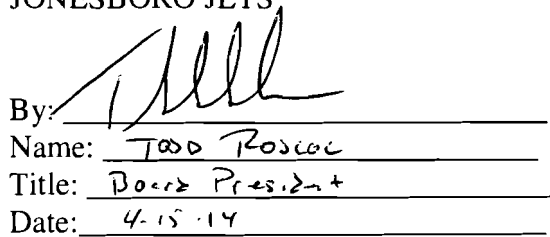 JONESBORO JETS
By:
Name: TODD Roscoe
Title: Board President
Date: 4-15-14